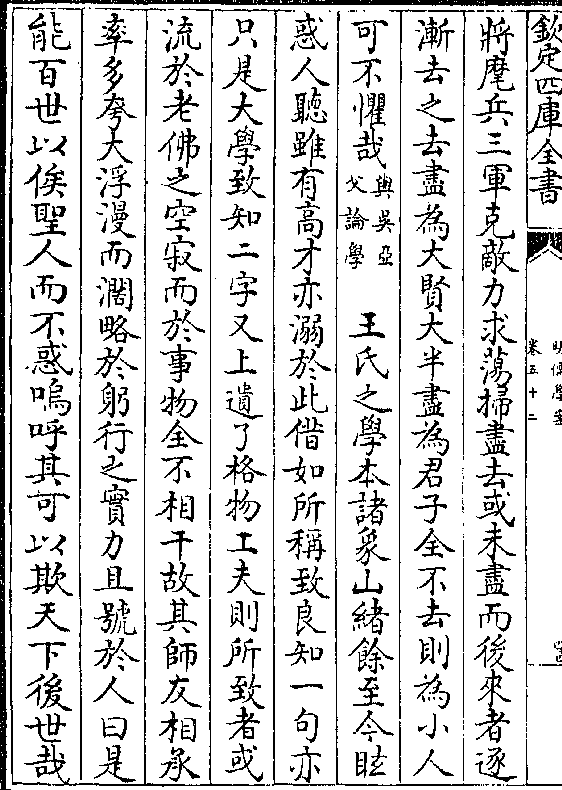 欽定四庫全書
明儒學案
卷五十二
將麾兵三軍克敵力求蕩掃盡去或未盡而後來者逐
漸去之去盡為大賢大半盡為君子全不去則為小人
可不懼哉與吳亞父論學　王氏之學本諸象山緒餘至今眩
惑人聽雖有高才亦溺於此借如所稱致良知一句亦
只是大學致知二字又上遺了格物工夫則所致者或
流於老佛之空寂而於事物全不相干故其師友相承
率多夸大浮漫而濶略於躬行之實力且號於人曰是
能百世以俟聖人而不惑嗚呼其可以欺天下後世哉